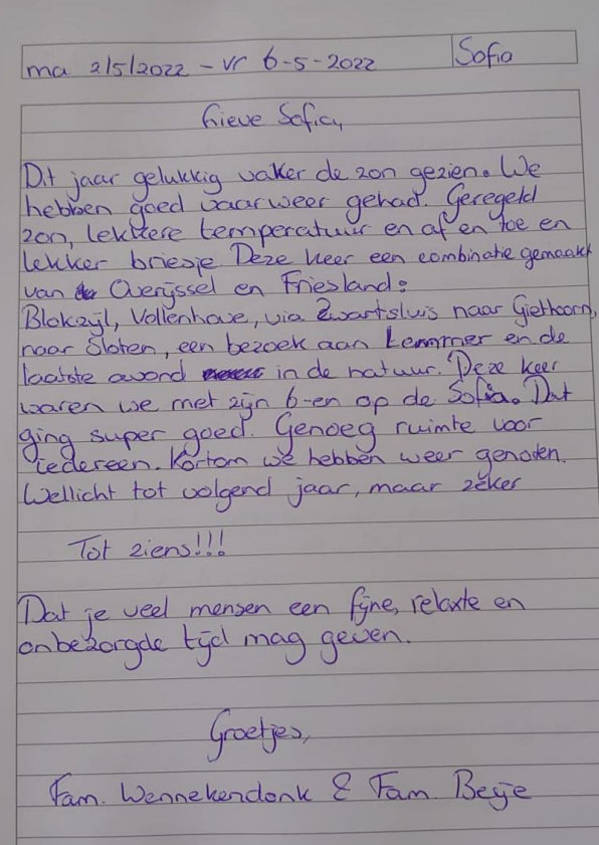 ma 2/5/2022 - vr 6-5-2022 Sofia
Lieve Sofia,
Dit jaar gelukkig vaker de zon gezien. We
hebben goed vaarweer gehad. Geregeld
zon, lekkere temperatuur en af en toe en
lekker briesje Deze keer een combinatie gemaakt
van Overijssel en Friesland:
Blokzijl, Vollenhove, via Zwartsluis naar Giethoorn,
naar Sloten, een bezoek aan Lemmer en de
laatste avond in de natuur. Deze keer
waren we met zijn 6-en op de Sofia. Dat
ging super goed. Genoeg ruimte voor
iedereen. Kortom we hebben weer genoten.
Wellicht tot volgend jaar, maar zeker
Tot ziens!!!
Dat je veel mensen een fijne, relaxte en
onbezorgde tijd mag geven.
Groetjes,
Fam. Wennekendonk & Fam. Beije